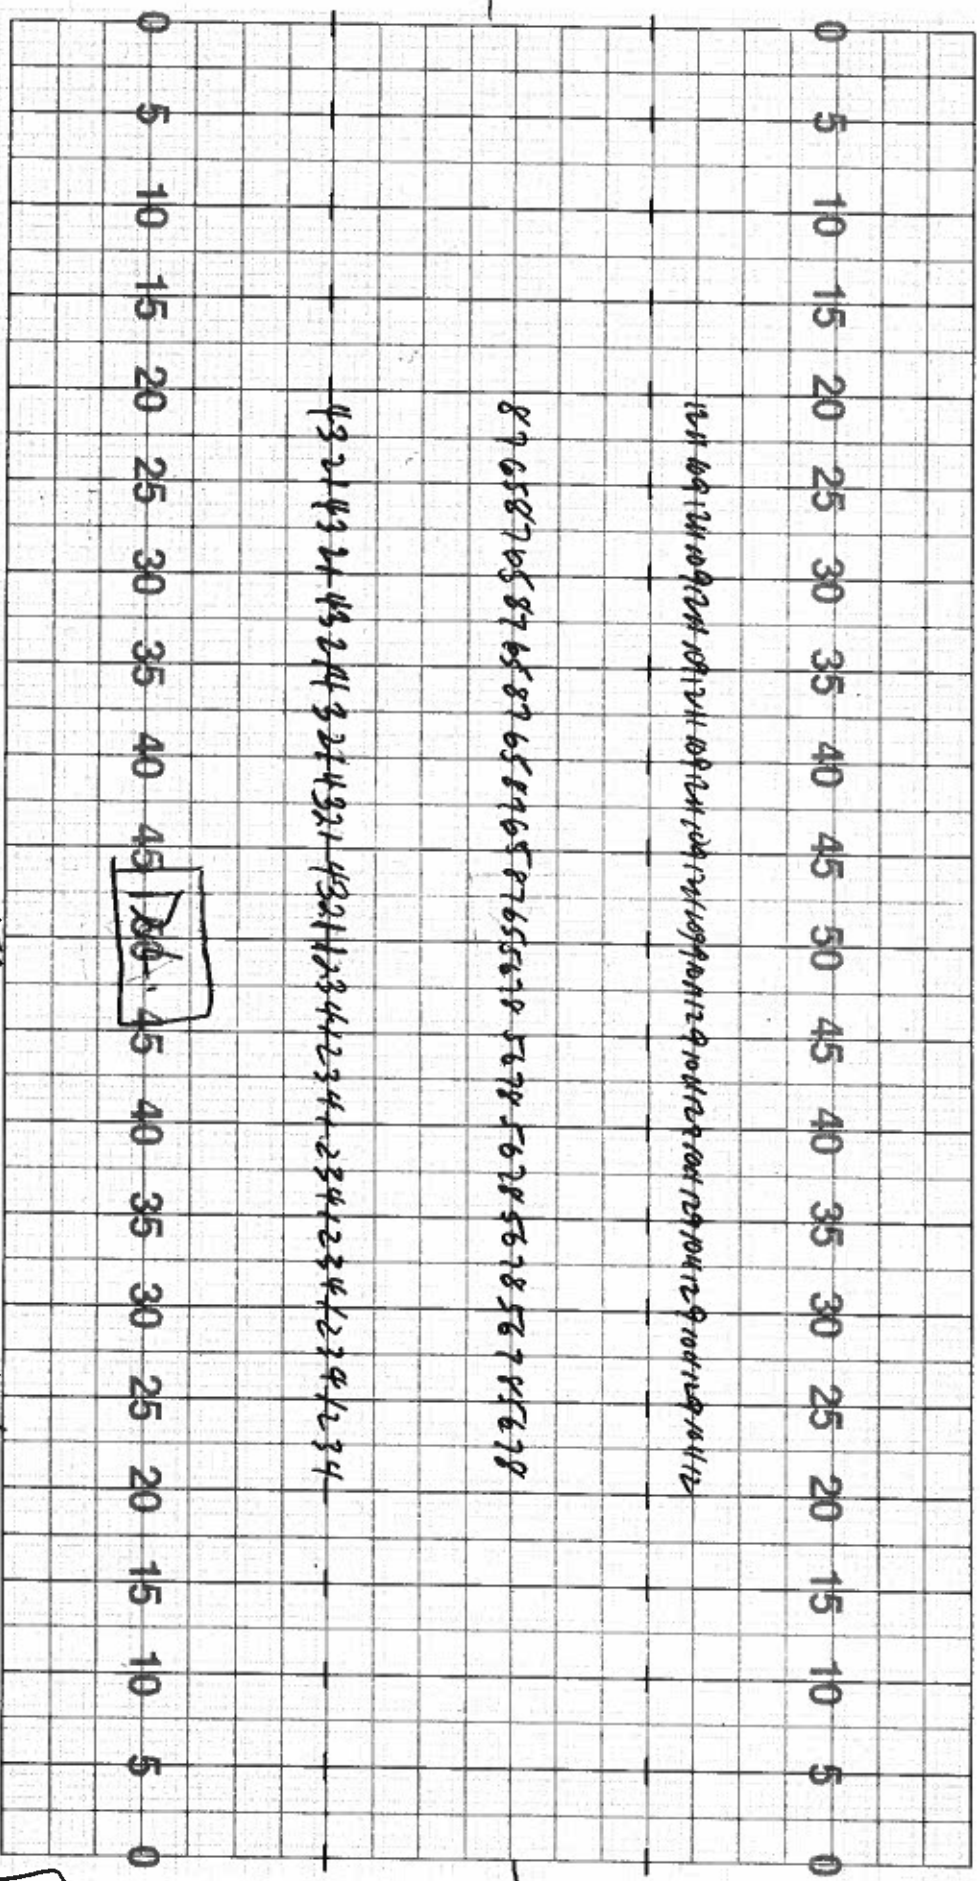 0 5 10 15 20 25 30 35 40 45 50 45 40 35 30 25 20 15 10 5 0
12 11 10 9 12 11 10 9 12 11 10 9 12 11 10 9 12 11 10 9 12 11 10 9 9 10 11 12 9 10 11 12 9 10 11 12 9 10 11 12 9 10 11 12 9 10 11 12
8 7 6 5 8 7 6 5 8 7 6 5 8 7 6 5 8 7 6 5 8 7 6 5 5 6 7 8 5 6 7 8 5 6 7 8 5 6 7 8 5 6 7 8 5 6 7 8
4 3 2 1 4 3 2 1 4 3 2 1 4 3 2 1 4 3 2 1 4 3 2 1 1 2 3 4 1 2 3 4 1 2 3 4 1 2 3 4 1 2 3 4 1 2 3 4
0 5 10 15 20 25 30 35 40 45 50 45 40 35 30 25 20 15 10 5 0